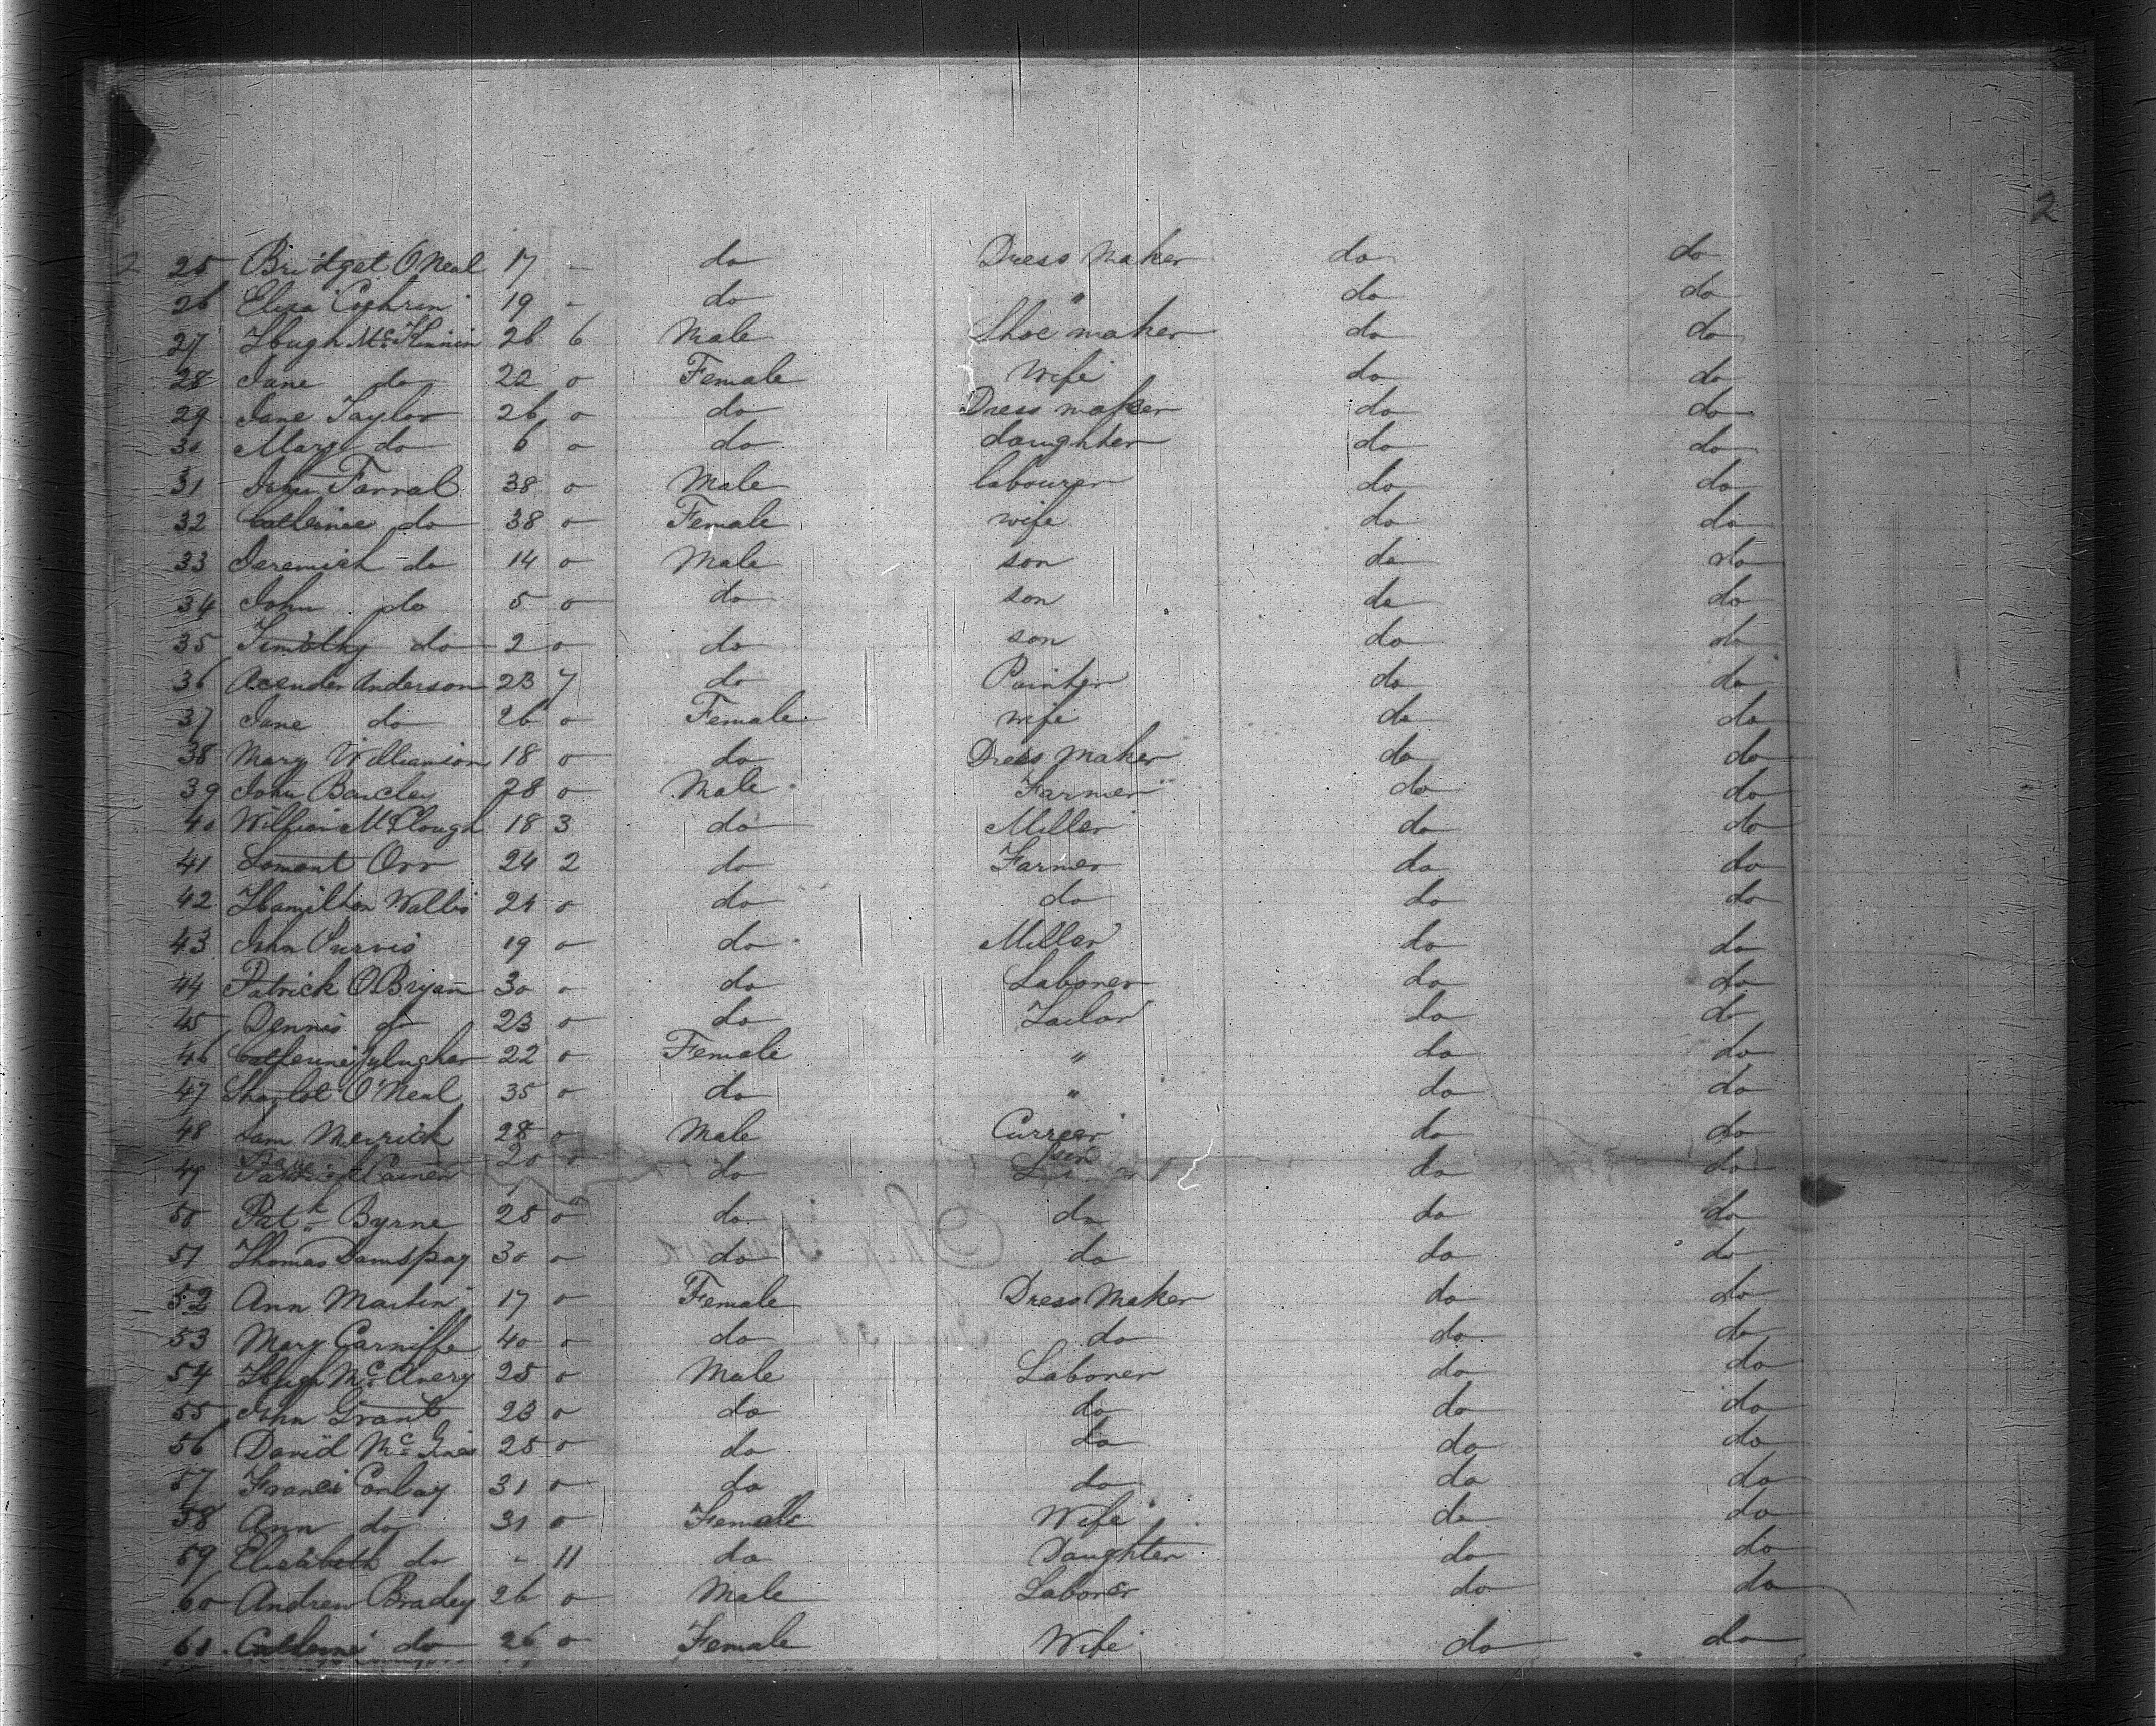 2
25 Bridget O'Neal 17 - do Dress Maker do do
26 Eliza Cochren 19 - do " do do
27 Hugh Mc Kinnin 26 6 Male Shoe maker do do
28 Jane do 22 o Female Wife do do
29 Jane Taylor 26 o do Dress maker do do
30 Mary do 6 o do daughter do do
31 John Farral 38 o Male labourer do do
32 Catherine do 38 o Female wife do do
33 Jeremiah do 14 o Male son do do
34 John do 5 o do son do do
35 Timothy do 2 o do son do do
36 Anderson 23 7 do Painter do do
37 Jane do 26 o Female wife do do
38 Mary Williamson 18 o do Dress Maker do do
39 John Barcley 28 o Male Farmer do do
40 William McClough 18 3 do Miller do do
41 Lamont Orr 24 2 do Farmer do do
42 Hamilton Wallis 21 o do do do do
43 John Purvis 19 o do Miller do do
44 Patrick O'Bryan 30 o do Laborer do do
45 Dennis do 23 o do Tailor do do
46 Catherine 22 o Female " do do
47 Sharlot O'Neal 35 o do " do do
48 Sam Meirick 28 o Male Currier do do
49 20 o do do do
50 Patk Byrne 25 o do do do do
51 Thomas Damspay 30 o do do do do
52 Ann Martin 17 o Female Dress Maker do do
53 Mary Garniffe 40 o do do do do
54 Hugh Mc Avery 25 o Male Laborer do do
55 John Grant 23 o do do do do
56 David Mc 25 o do do do do
57 Francis Conlay 31 o do do do do
58 Ann do 31 o Female Wife do do
59 Elizabeth do - 11 do Daughter do do
60 Andrew Bradey 26 o Male Laborer do do
61 Catherine do 26 o Female Wife do do